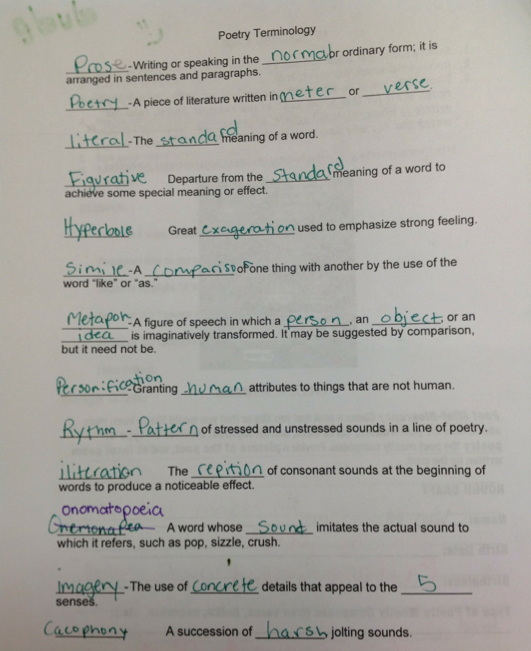 Poetry Terminology
Prose - Writing or speaking in the normal or ordinary form; it is
arranged in sentences and paragraphs.
Poetry - A piece of literature written in meter or verse.
literal - The standard meaning of a word.
Figurative Departure from the standard meaning of a word to
achieve some special meaning or effect.
Hyperbole Great exageration used to emphasize strong feeling.
Simile - A comparison of one thing with another by the use of the
word "like" or "as."
Metaphor - A figure of speech in which a person, an object, or an
idea is imaginatively transformed. It may be suggested by comparison,
but it need not be.
Personification - Granting human attributes to things that are not human.
Rythm - Pattern of stressed and unstressed sounds in a line of poetry.
iliteration The repition of consonant sounds at the beginning of
words to produce a noticeable effect.
onomatopoeia
A word whose sound imitates the actual sound to
which it refers, such as pop, sizzle, crush.
Imagery - The use of concrete details that appeal to the 5
senses.
Cacophony A succession of harsh jolting sounds.